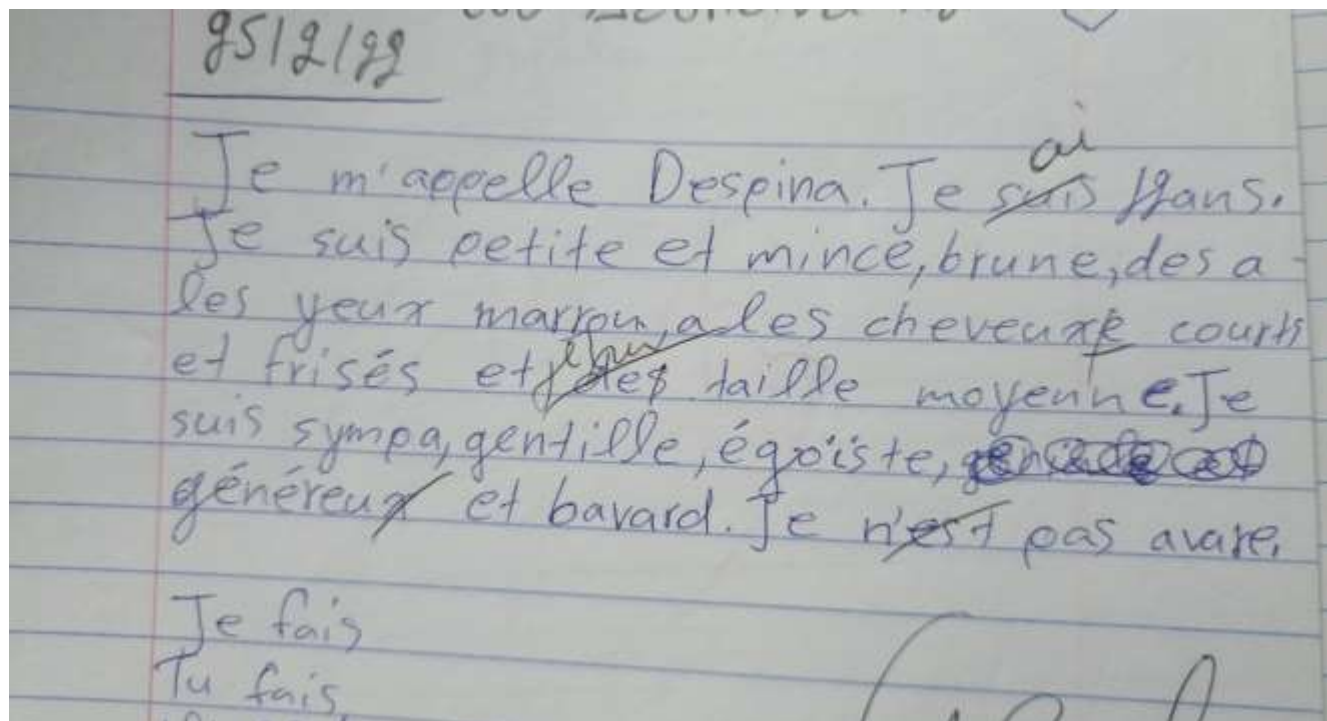 Je m'appelle Despina. Je suis ai ans.
Je suis petite et mince, brune, des a
les yeux marron, a les cheveux courts
et frisés et taille moyenne. Je
suis sympa, gentille, égoïste,
généreux et bavard. Je n'est pas avare.
Je fais
Tu fais